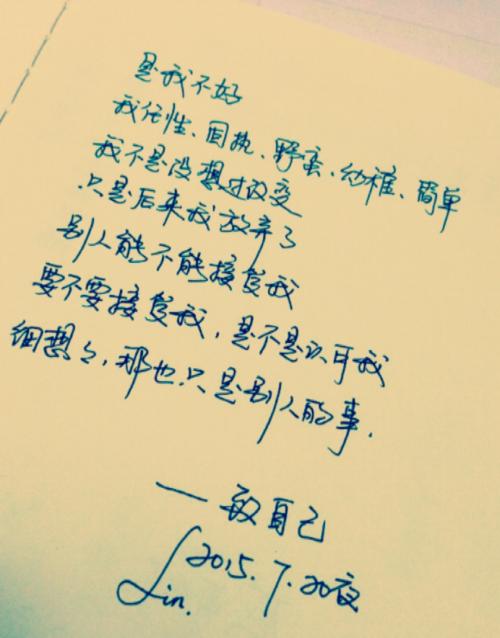 是我不好
我任性、固执、野蛮、幼稚、简单
我不是没想过改变
只是后来我放弃了
别人能不能接受我
要不要接受我，是不是认可我
细想想，那也只是别人的事.
——致自己
2015.7.20夜
Lin.